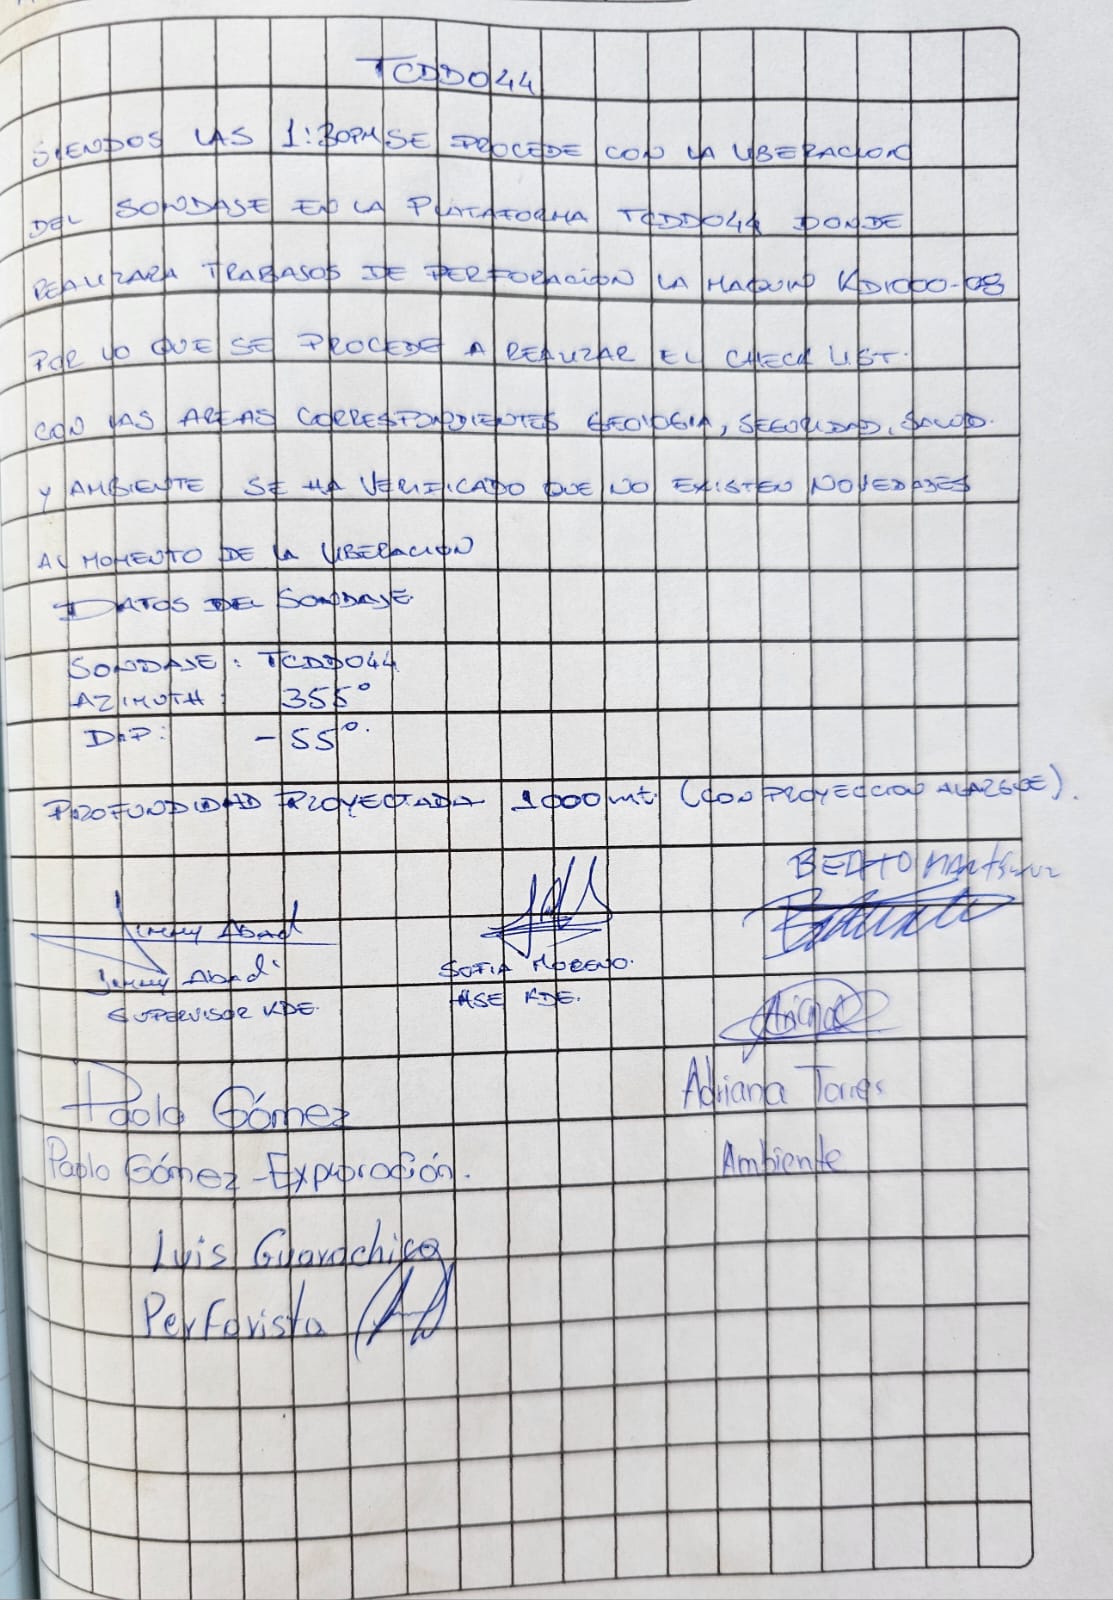 TCDD044
SIENDOS LAS 1:30PM SE PROCEDE CON LA LIBERACION
DEL SONDAJE EN LA PLATAFORMA TCDD044 DONDE
REALIZARA TRABAJOS DE PERFORACIÓN LA MAQUIN KD1000-08
POR LO QUE SE PROCEDE A REALIZAR EL CHECK LIST.
CON LAS AREAS CORRESPONDIENTES GEOLOGIA, SEGURIDAD, SALUD.
Y AMBIENTE SE HA VERIFICADO QUE NO EXISTEN NOVEDADES
AL MOMENTO DE LA LIBERACION
DATOS DEL SONDAJE.
SONDAJE: TCDD044
AZIMUTH: 355°
DIP: -55°.
PROFUNDIDAD PROYECTADA 1000mt. (CON PROYECCION ALARGUE).
BERTO MARTINEZ
Jimmy Abad
Jimmy Abad
SOFIA MORENO.
SUPERVISOR KDE.
HSE KDE.
Adriana
Paolo Gómez
Adriana Torres
Paolo Gómez - Exploración.
Ambiente
Luis Guarachico
Perforista